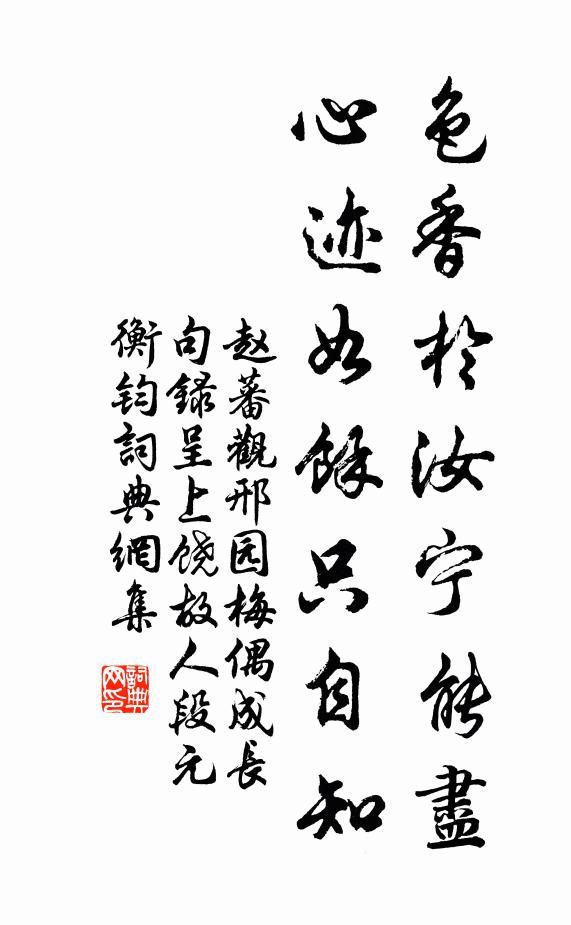 色香於汝宁能盡
心迹如餘只自知
赵蕃觀邢园梅偶成長
句録呈上饶故人段元
衡钧詞典網集
詞典网印